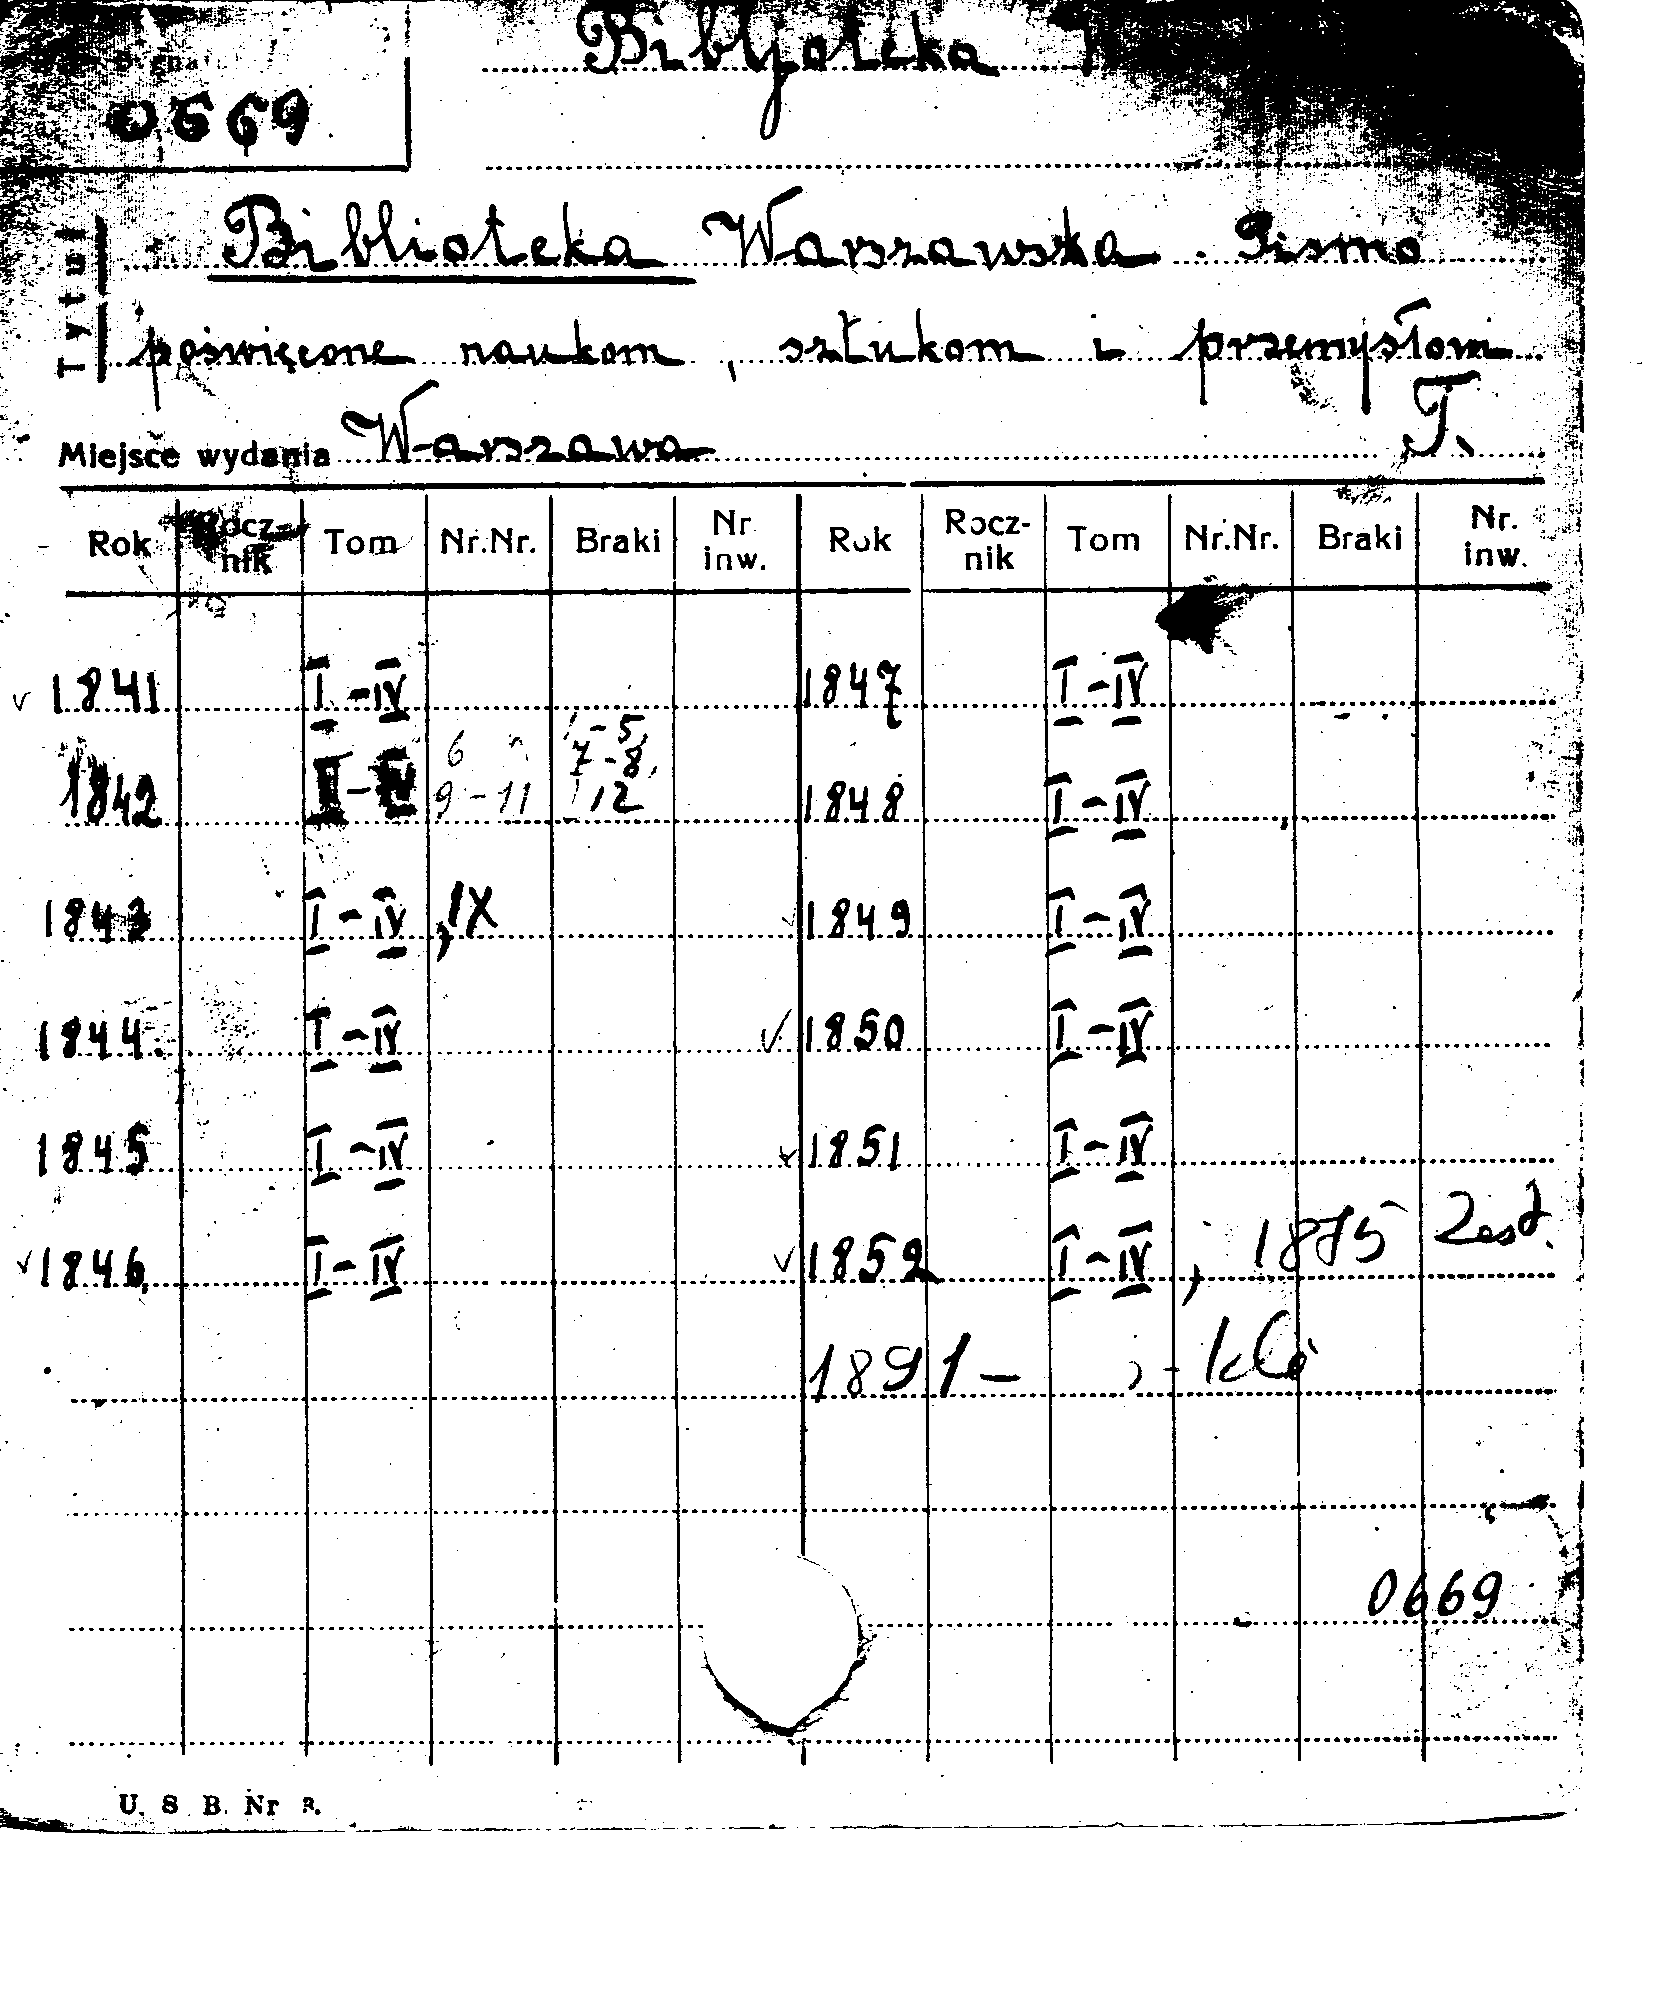 Bibljoteka
0669
Tytuł
Biblioteka Warszawska. Pismo
poświęcone naukom, sztukom i przemysłowi
Miejsce wydania Warszawa T.
Rok Rocznik Tom Nr.Nr. Braki Nr inw. Rok Rocznik Tom Nr.Nr. Braki Nr. inw.
√ 1841 I-IV 1847 I-IV
1842 II-IV 6 9-11 1-5, 7-8, 12 1848 I-IV
1843 I-IV, IX √ 1849 I-IV
1844 I-IV √ 1850 I-IV
1845 I-IV √ 1851 I-IV
√ 1846 I-IV √ 1852 I-IV, 1875 Zesz.
1891 -
0669
U. S. B. Nr 8.